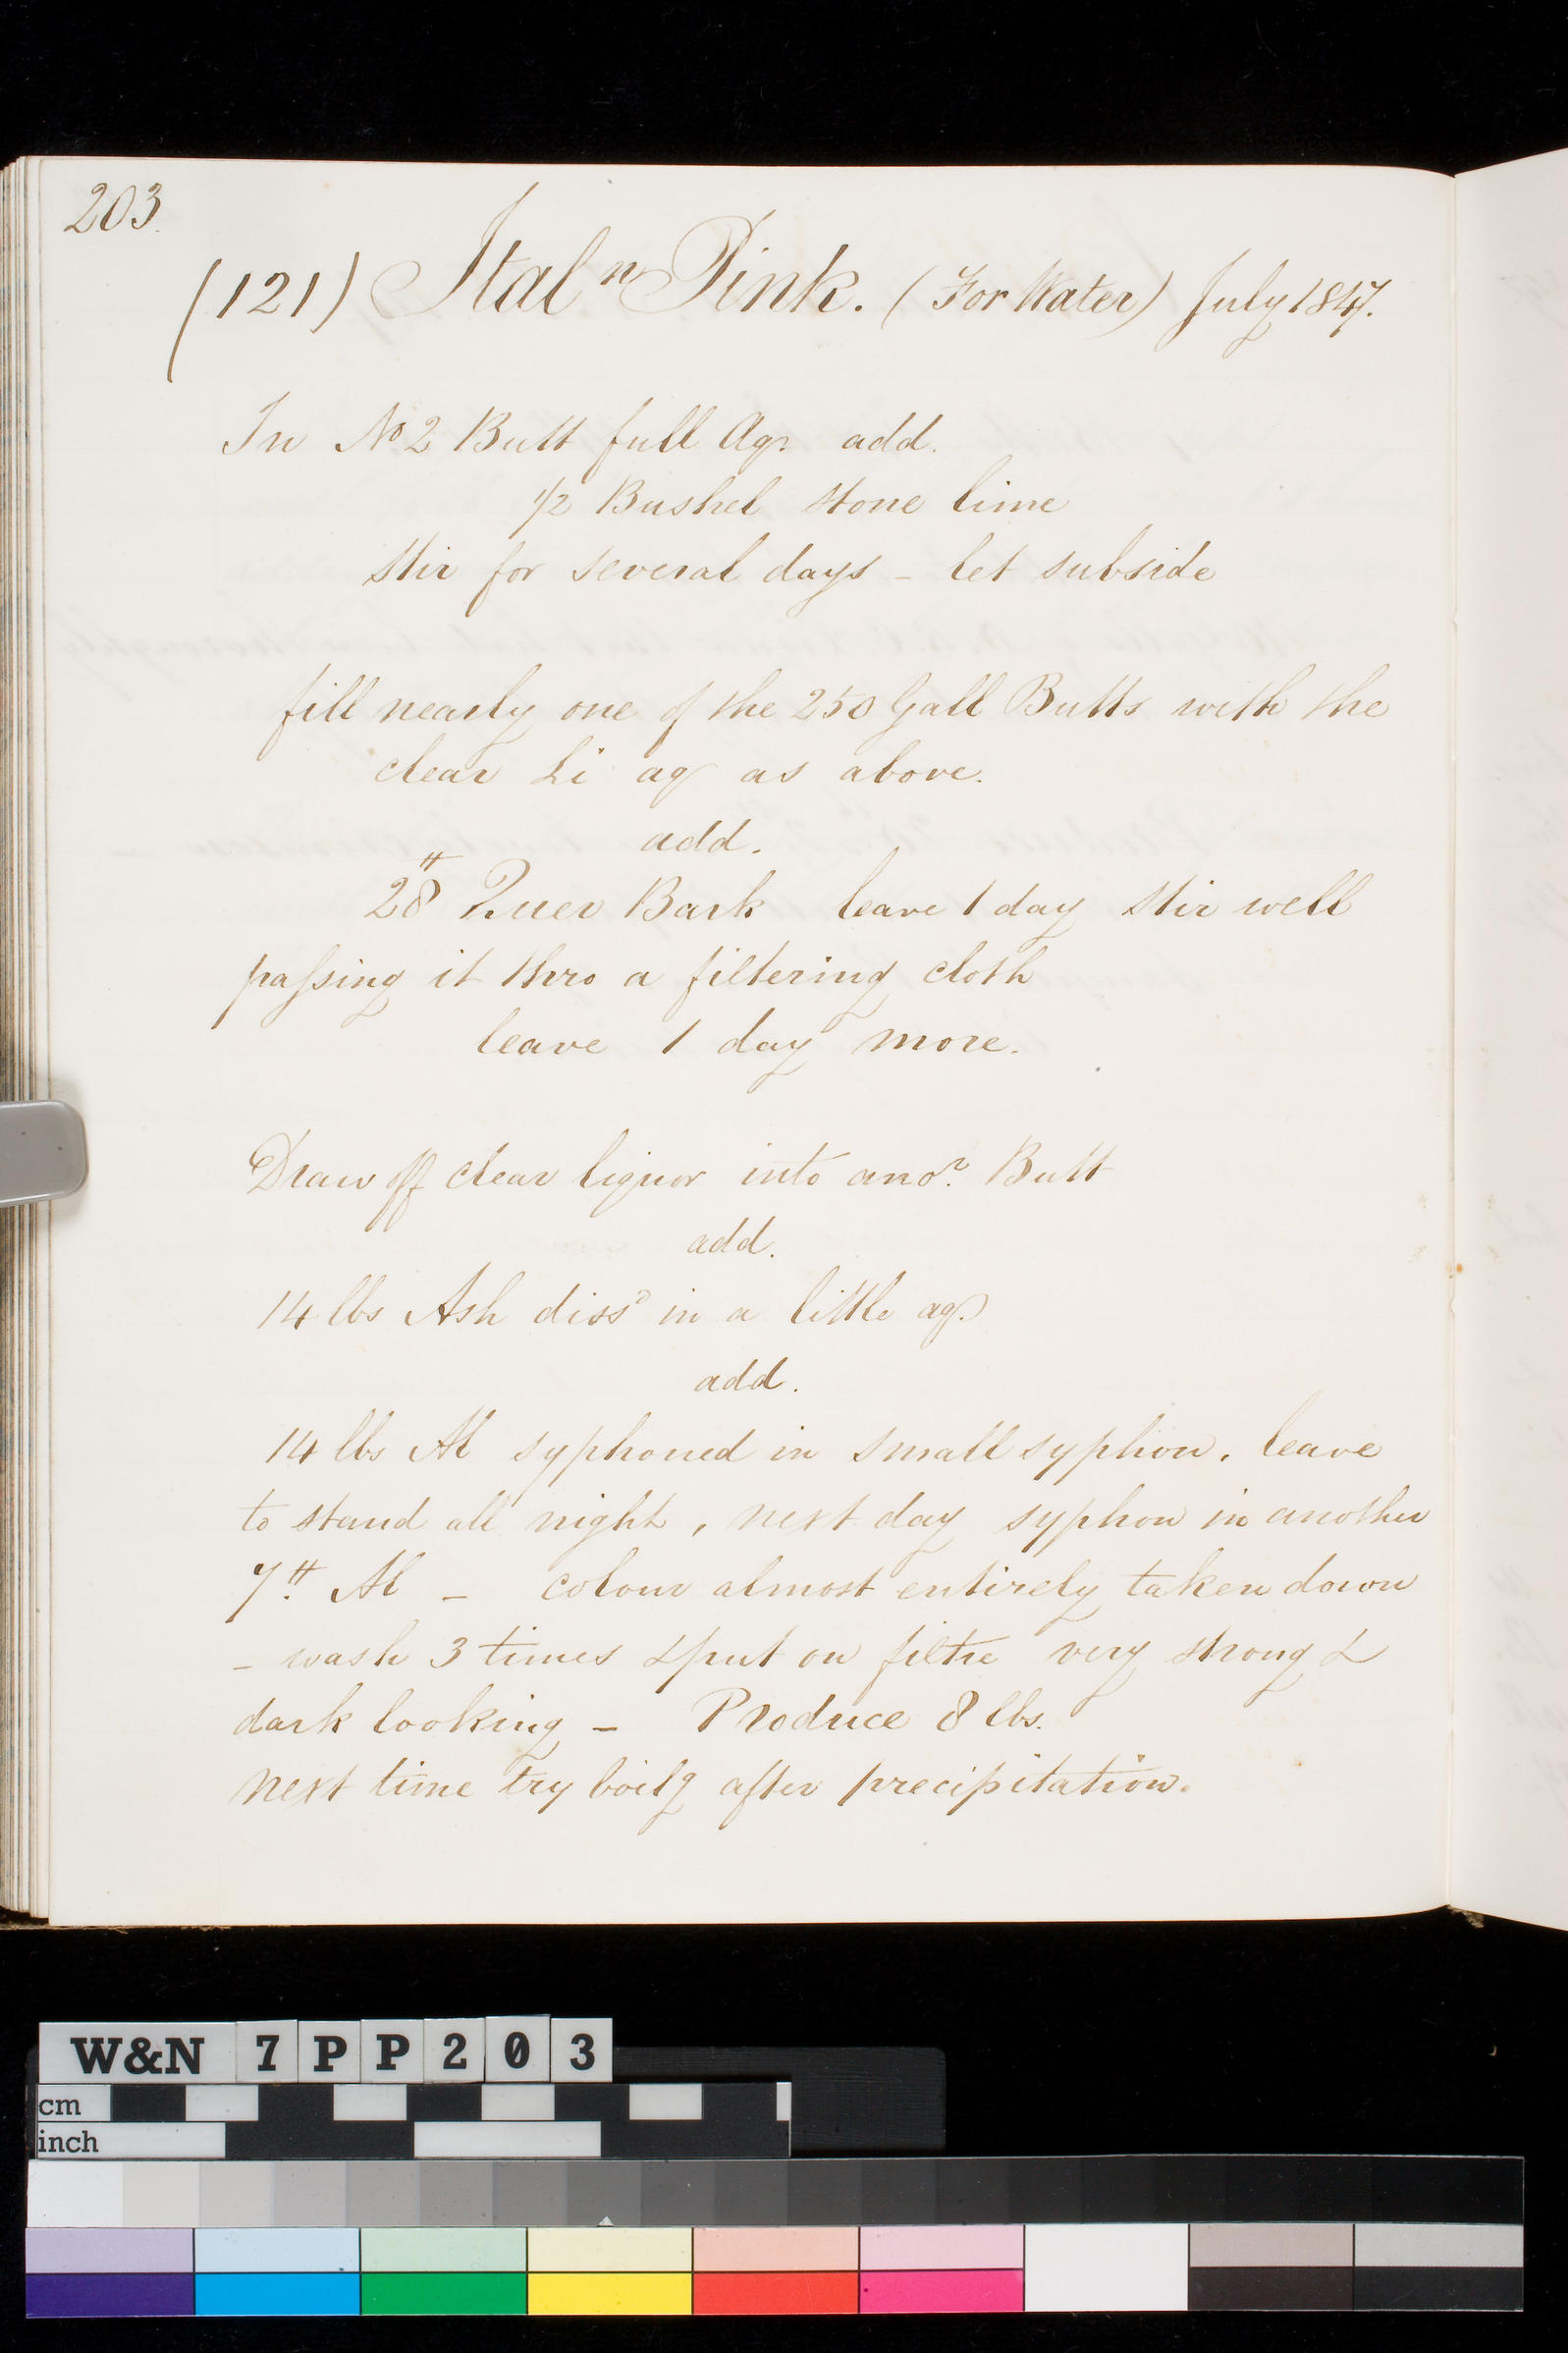 203.
(121) Ital n Pink. (For Water) July 1847.
In No 2 Butt full Aq: add.
1/2 Bushel Stone lime
Stir for several days - let subside
fill nearly one of the 250 Gall Butts with the
clear Li aq as above.
add.
28 tt Quer Bark leave 1 day Stir well
passing it thro a filtering cloth
leave 1 day more.
Draw off clear liquor into anor. Butt
add.
14 lbs Ash dissd in a little aq.
add.
14 lbs Al syphoned in small syphon. leave
to stand all night, next day syphon in another
7 tt. Al - colour almost entirely taken down
- wash 3 times & put on filtre very strong &
dark looking - Produce 8 lbs.
next time try boilg after precipitation.
W&N 7PP203
cm
inch